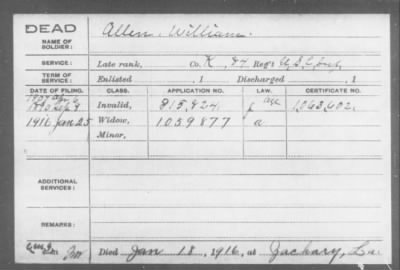 DEAD
NAME OF SOLDIER: Allen, William.
SERVICE: Late rank, Co. K, 84 Reg't U.S.C. Inf.
TERM OF SERVICE: Enlisted , 1 Discharged , 1
DATE OF FILING. CLASS. APPLICATION NO. LAW. CERTIFICATE NO.
1907 Apr 6
1890 Sep 8 Invalid, 815,824 j age 1,063,602
1916 Jan 25 Widow, 1059877 a
Minor,
ADDITIONAL SERVICES:
REMARKS:
Died Jan 18, 1916, at Zachary, La.